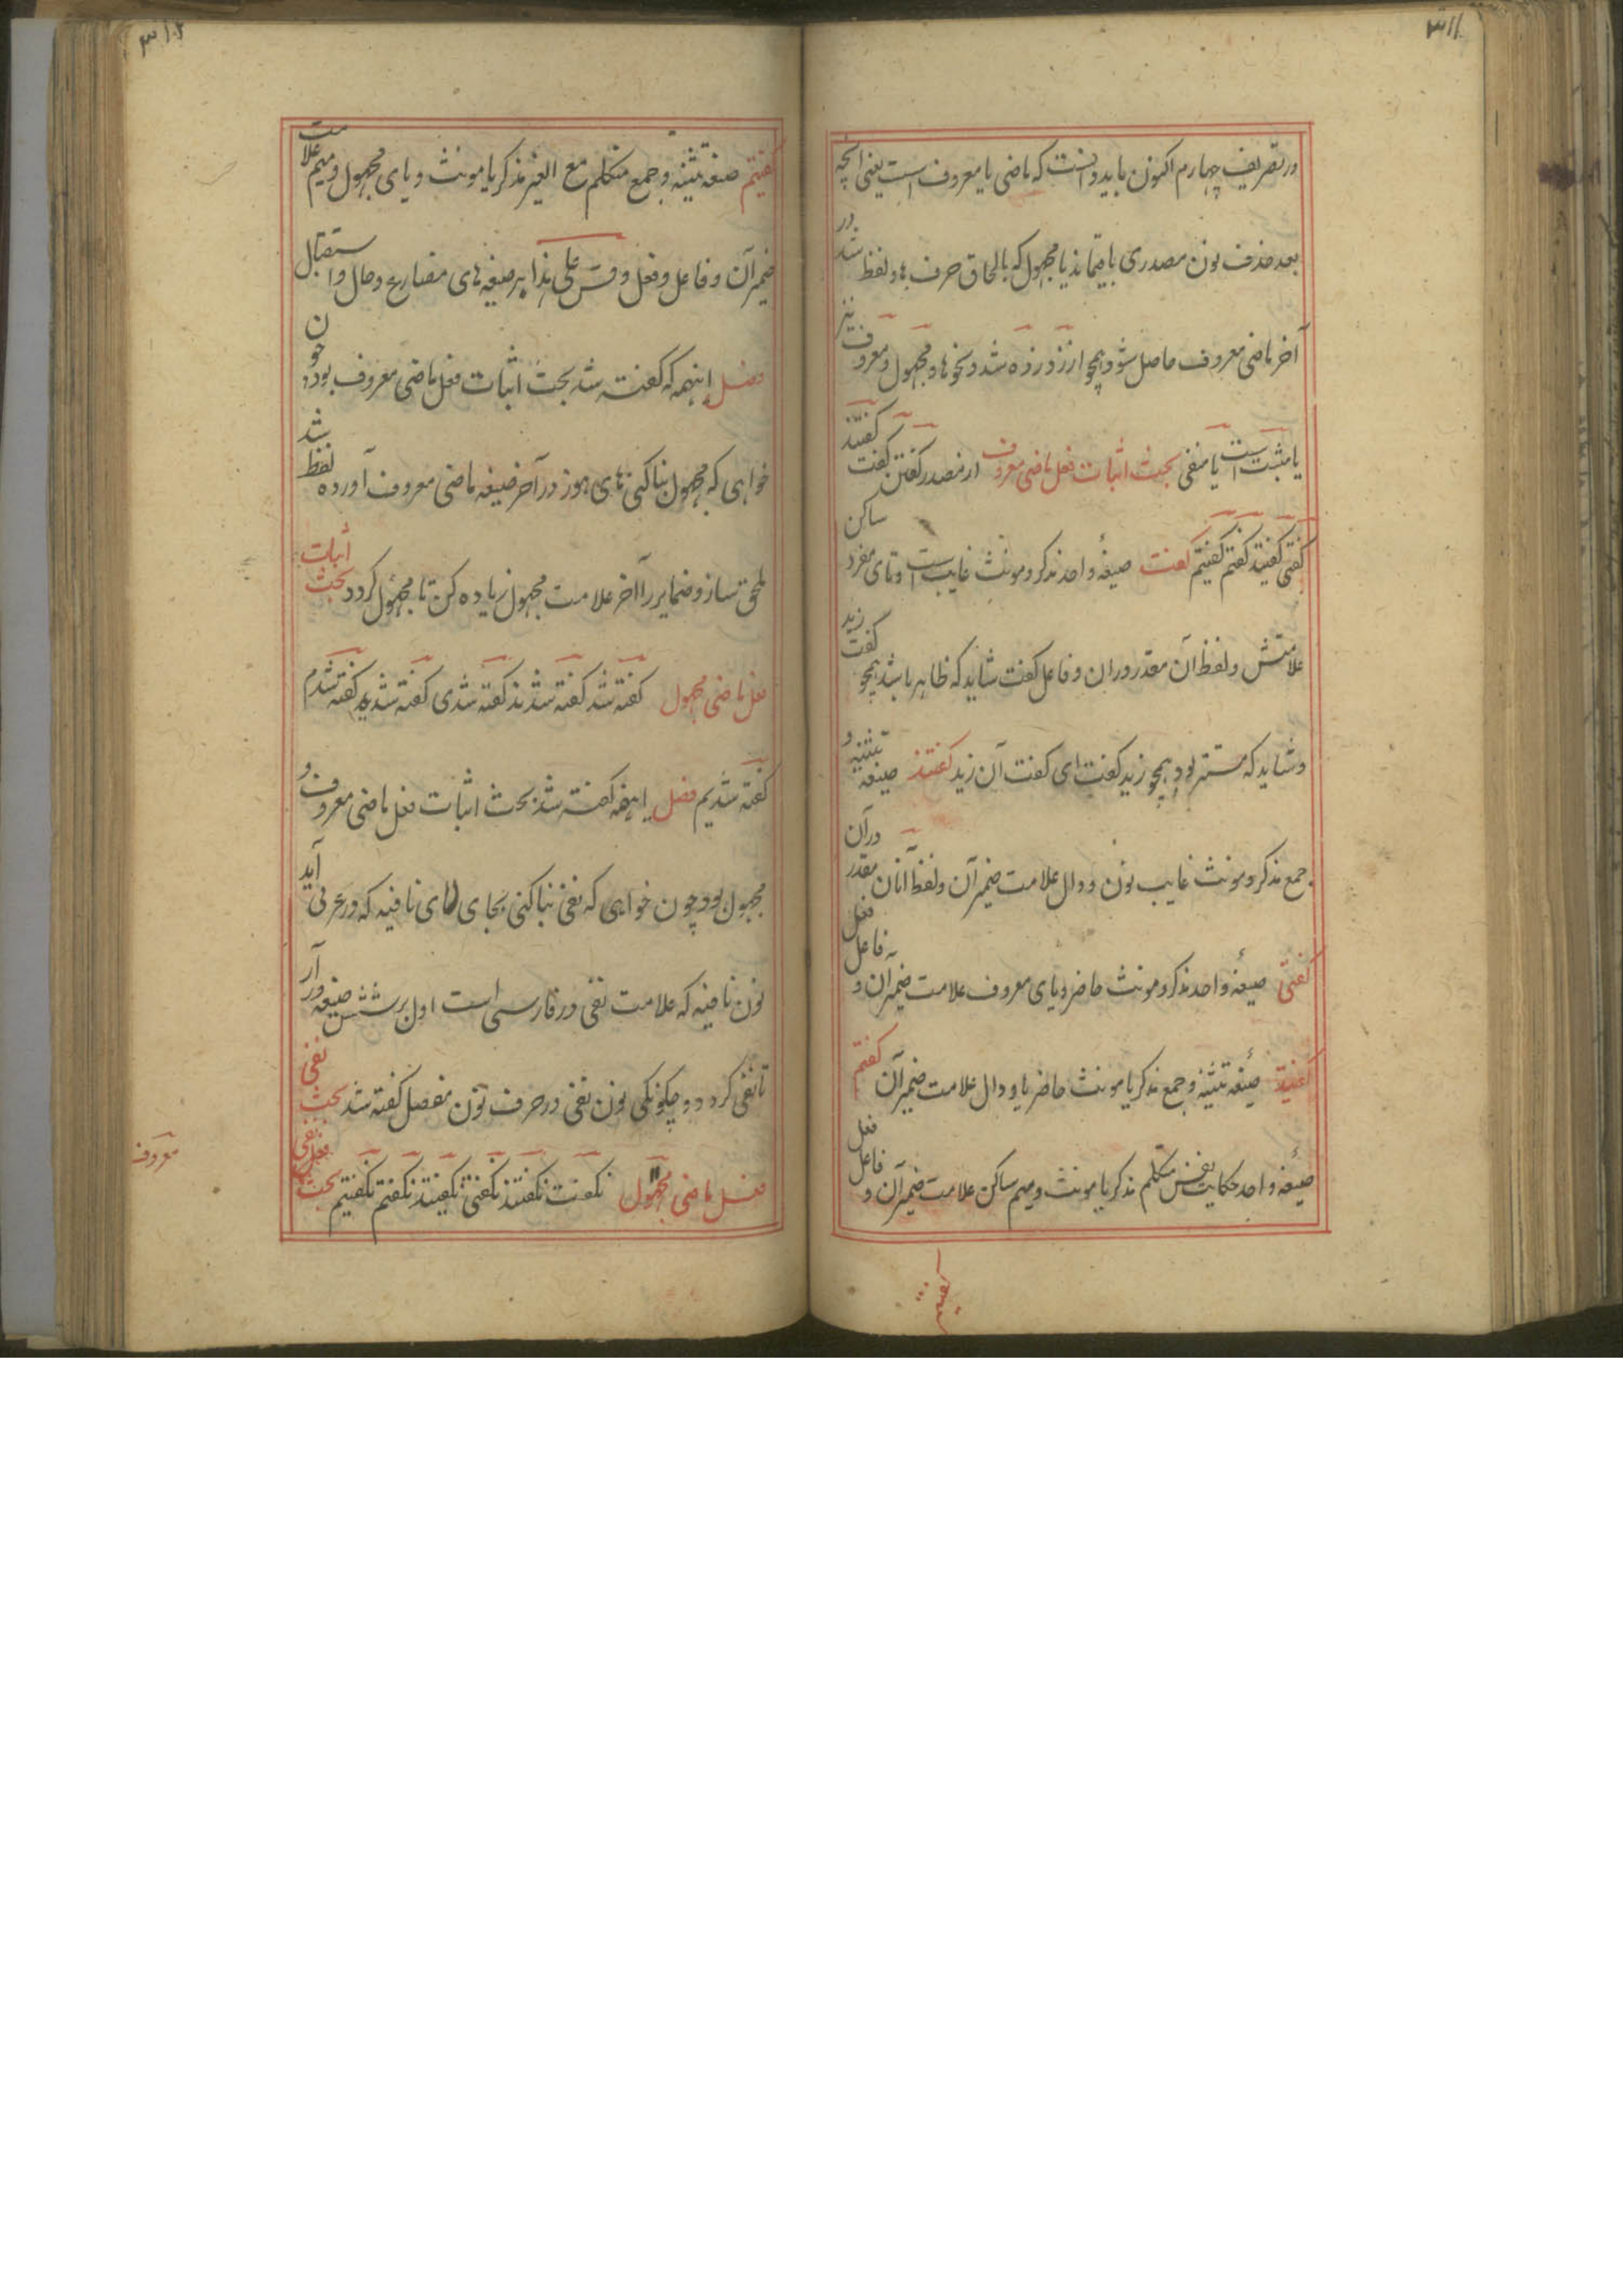 ۳۱۱
در تصریف چهارم اکنون باید دانست که ماضی یا معروف است یعنی آنچه
بعد حذف نون مصدری باقیماند یا مجهول که بالحاق حرف ها و لفظ شد در
آخر ماضی معروف حاصل شود همچو از زد زده شد و نحوها و مجهول و معروف نیز
یا مثبت است یا منفی بحث اثبات فعل ماضی معروف از مصدر گفتن گفت گفتند
گفتی گفتید گفتم گفتیم گفت صیغهٔ واحد مذکر و مونث غایب است و تای مفرد ساکن
علامتش و لفظ آن مقدر دران و فاعل گفت شاید که ظاهر باشد همچو گفت زید
و شاید که مستتر بود همچو زید گفت ای گفت آن زید گفتند صیغه تثنیه و
جمع مذکر و مونث غایب نون و دال علامت ضمیر آن و لفظ آنان مقدر درآن
گفتی صیغهٔ واحد مذکر و مونث حاضر و یای معروف علامت ضمیر آن و فاعل فعل
گفتید صیغهٔ تثنیه و جمع مذکر یا مونث حاضر یا و دال علامت ضمیر آن گفتم
صیغهٔ واحد حکایت نفس متکلم مذکر یا مونث و میم ساکن علامت ضمیر آن و فاعل فعل
گفتیم
۳۱۲
گفتیم صیغه تثنیه و جمع متکلم مع الغیر مذکر یا مونث و یای مجهول و میم علامت
ضمیر آن و فاعل و فعل و قس علی هذا بر صیغه های مضارع و حال و استقبال
فصل اینهمه که گفته شد بحث اثبات فعل ماضی معروف بود چون
خواهی که مجهول بنا کنی های هوز در آخر صیغه ماضی معروف آورده لفظ شد
ملحق ساز و ضمایر را آخر علامت مجهول زیاده کن تا مجهول گردد بحث اثبات
فعل ماضی مجهول گفته شد گفته شدند گفته شدی گفته شدید گفته شدم
گفته شدیم فصل اینهمه گفته شد بحث اثبات فعل ماضی معروف و
مجهول بود چون خواهی که نفی بنا کنی بجای لای نافیه که در عربی آید
نون نافیه که علامت نفی در فارسی است اول هر شش صیغه در آر
تا نفی گردد و چگونگی نون نفی در حرف نون مفصل گفته شد بحث نفی
فعل ماضی مجهول نگفت نگفتند نگفتی نگفتید نگفتم نگفتیم بحث نفی فعل
معروف